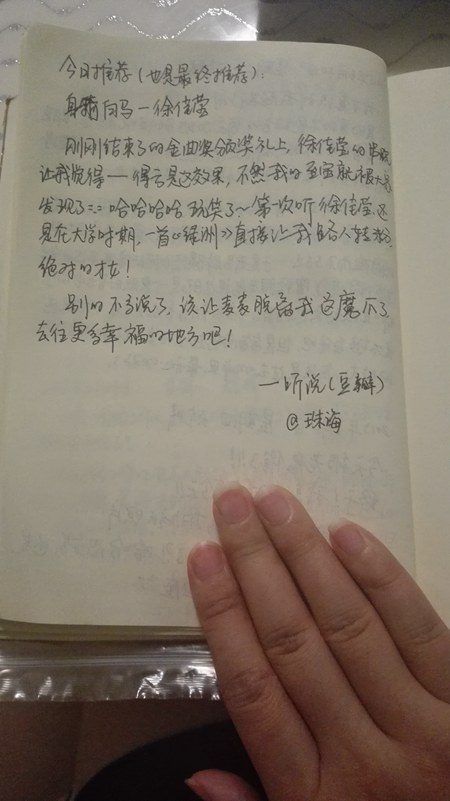 今日推荐(也是最终推荐):
身骑白马—徐佳莹
刚刚结束了的金曲奖颁奖礼上,徐佳莹的串烧
让我觉得——得亏是这效果,不然我的至宝就被大家
发现了:-: 哈哈哈哈 玩笑了~第一次听徐佳莹,还
是在大学时期,一首《绿洲》直接让我路人转粉,
绝对的才女!
别的不多说了,该让麦麦脱离我这魔爪了,
去往更多幸福的地方吧!
—听说(豆瓣)
@珠海